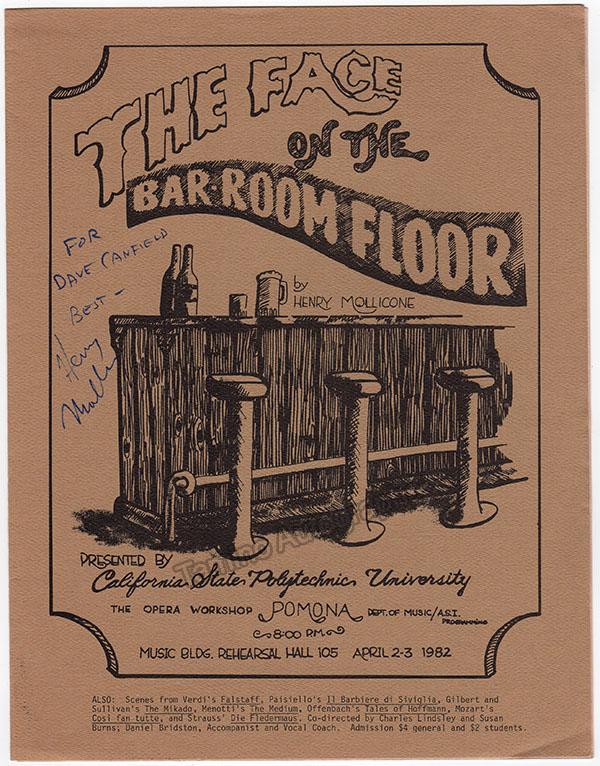 THE FACE
ON THE
BAR-ROOM FLOOR
FOR
DAVE CANFIELD
BEST-
Henry
by
HENRY MOLLICONE
PRESENTED BY
California State Polytechnic University
THE OPERA WORKSHOP POMONA DEPT. OF MUSIC/A.S.I. PROGRAMMING
8:00 P.M.
MUSIC BLDG. REHEARSAL HALL 105 APRIL 2-3 1982
ALSO: Scenes from Verdi's Falstaff, Paisiello's Il Barbiere di Siviglia, Gilbert and
Sullivan's The Mikado, Menotti's The Medium, Offenbach's Tales of Hoffmann, Mozart's
Cosi fan tutte, and Strauss' Die Fledermaus. Co-directed by Charles Lindsley and Susan
Burns; Daniel Bridston, Accompanist and Vocal Coach. Admission $4 general and $2 students.